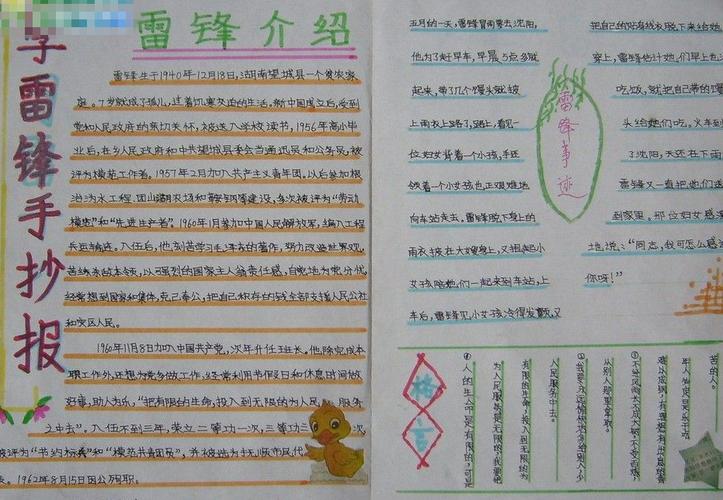 学雷锋手抄报
雷锋介绍
雷锋生于1940年12月18日,湖南望城县一个贫农家
庭。7岁就成了孤儿,过着饥寒交迫的生活。新中国成立后,受到
党和人民政府的亲切关怀,被送入学校读书,1956年高小毕
业后,在乡人民政府和中共望城县委会当通迅员和公务员,被
评为模范工作者。1957年2月加入共产主义青年团。以后参加根
治沩水工程、团山湖农场和鞍钢等建设,多次被评为“劳动
模范”和“先进生产者”。1960年1月参加中国人民解放军,编入工程
兵运输连。入伍后,他刻苦学习毛泽东的著作,努力改造世界观,
苦练杀敌本领,以高强烈的国家主人翁责任感,自觉地为党分忧,
经常想到国家和集体,克己奉公,把自己积存的钱全部支援人民公社
和灾区人民。
1960年11月8日加入中国共产党,次年升任班长。他除完成本
职工作外,还想为党多做工作。经常利用节假日和休息时间做
好事,助人为乐,“把有限的生命,投入到无限的为人民服务
之中去”。入伍不到三年,荣立二等功一次,三等功三次,
被评为“节约标兵”和“模范共青团员”,并被选为抚顺市民代
表。1962年8月15日因公殉职。
五月的一天,雷锋冒雨要去沈阳,
他为了赶早车,早晨5点多就
起来,带了几个馒头就披
上雨衣上路了,路上,看见一
位妇女背着一个小孩,手还
领着一个小女孩也正艰难地
向车站走去。雷锋脱下身上的
雨衣披在大嫂身上,又抱起小
女孩陪她们一起来到车站,上
车后,雷锋见小女孩冷得发颤,又
雷锋事迹
把自己的贴身线衣脱下来给她
穿上,雷锋估计她们早上也没
吃饭,就把自己带的馒
头给她们吃。火车到
了沈阳,天还在下雨
雷锋又一直把她们送
到家里。那位妇女感
地说:“同志,我可怎么感
你呀!”
格言
①人的生命是有限的,可是
为人民服务是无限的,我要把
有限的生命,投入到无限的
为人民服务中去。
②我要永远愉快地多给别人,少
从别人那里拿取。
①不经风雨,长不成大树,不受百炼,
难以成钢,
苦的人。